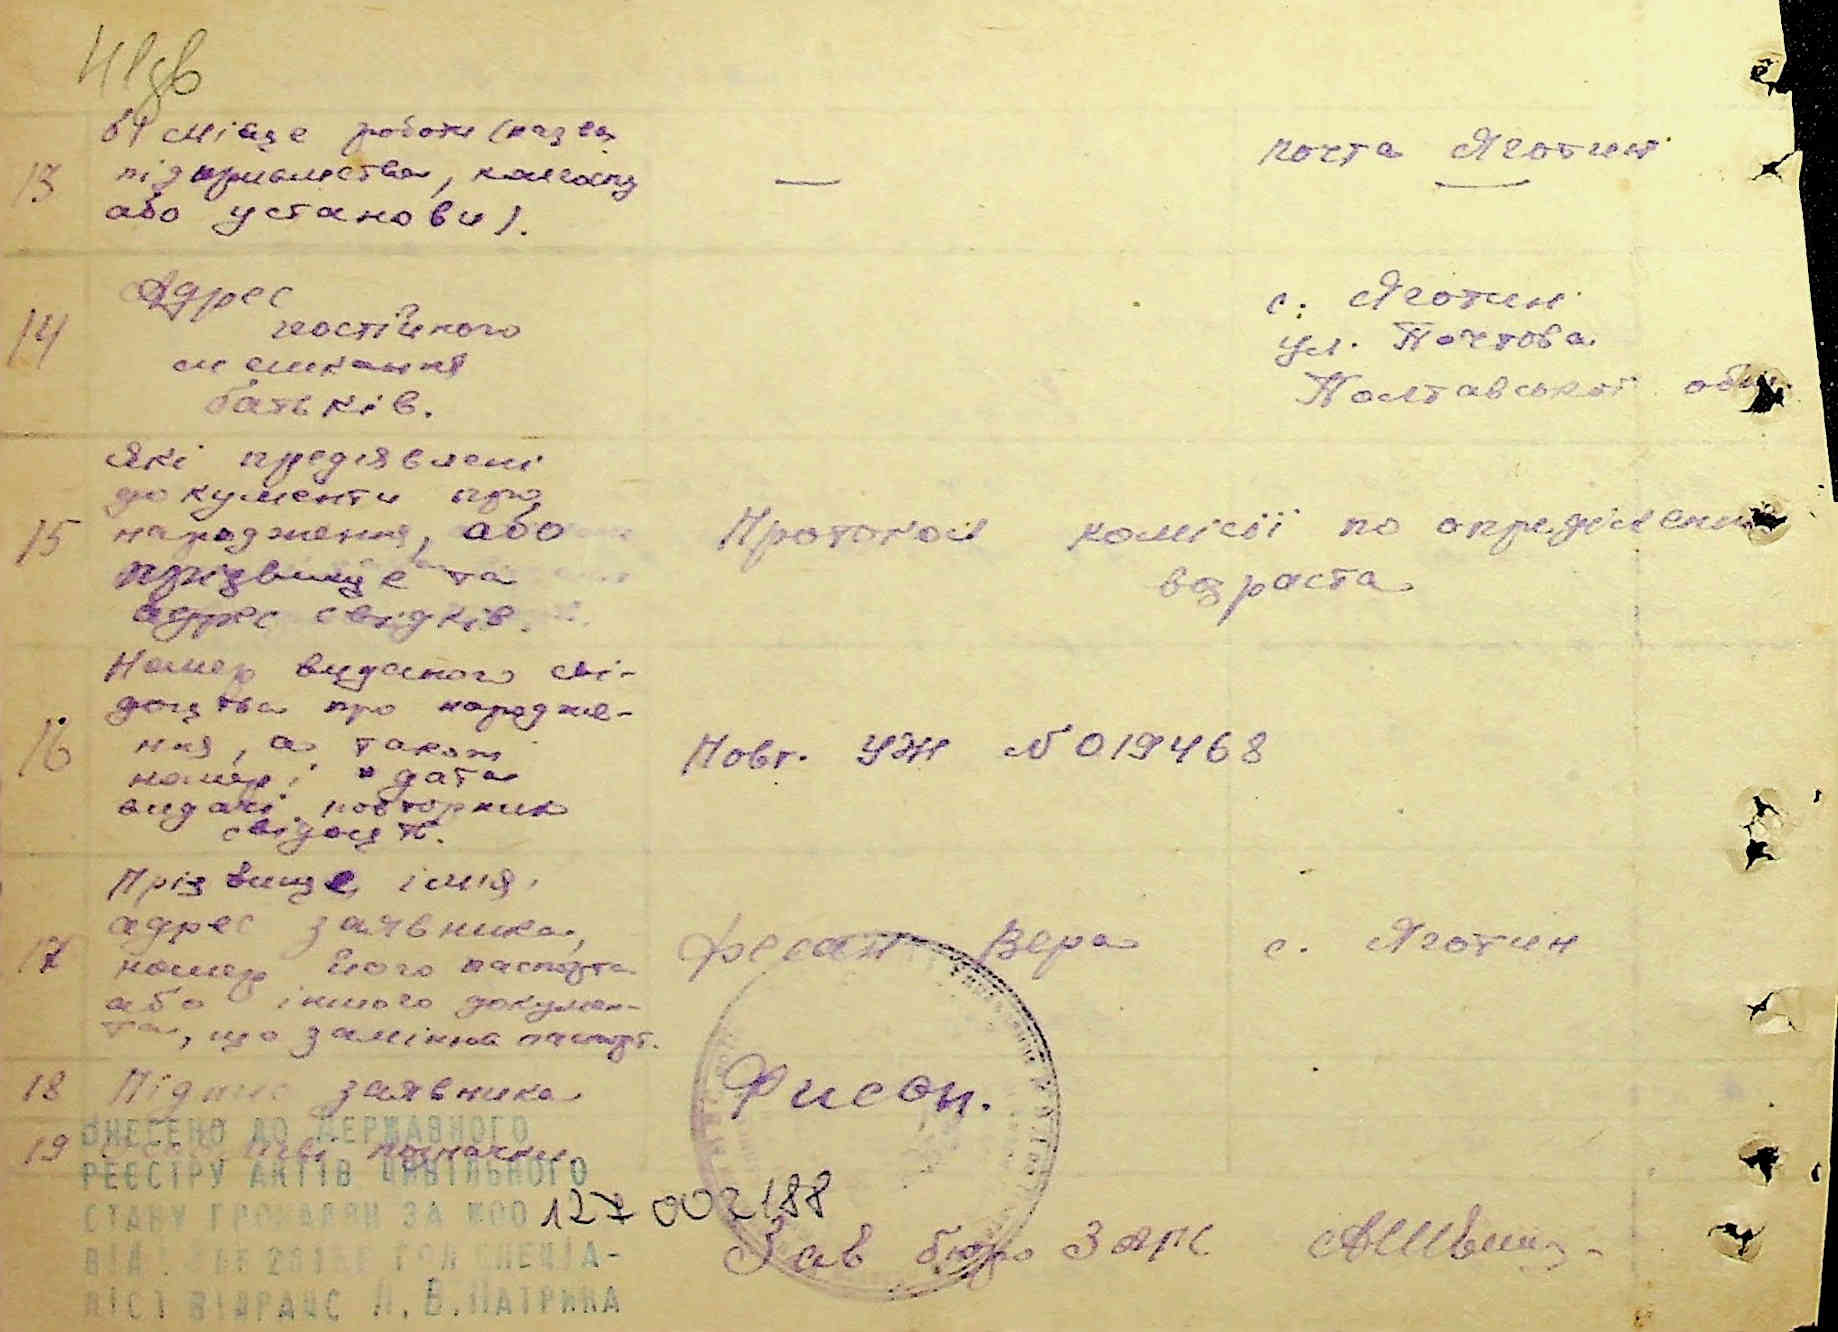 41зв
13 в) місце роботи (назва
підприємства, колгоспу
або установи).
—
почта Яготин
—
14 Адрес
постійного
мешкання
батьків.
с. Яготин
ул. Почтова
Полтавської обл.
15 Які предіявлені
документи про
народження, або
прізвище та
адрес свідків.
Протокол комісії по опреділенню
возраста
16 Номер виданого сві-
доцтва про народже-
ння, а також
номер і дата
видачі повторних
свідоцтв.
Повт. УЖ № 019468
17 Прізвище, імя,
адрес заявника,
номер його паспорта
або іншого докумен-
та, що заміняє паспорт.
Фесан Вера с. Яготин
18 Підпис заявника
Фисан.
19 позначки
ВНЕСЕНО ДО ДЕРЖАВНОГО
РЕЄСТРУ АКТІВ ЦИВІЛЬНОГО
СТАНУ ГРОМАДЯН ЗА №00 127 002188
СПЕЦІА-
ЛІСТ ВІДРАЦС Л.В.ПАТРИКА
Зав бюро ЗАГС